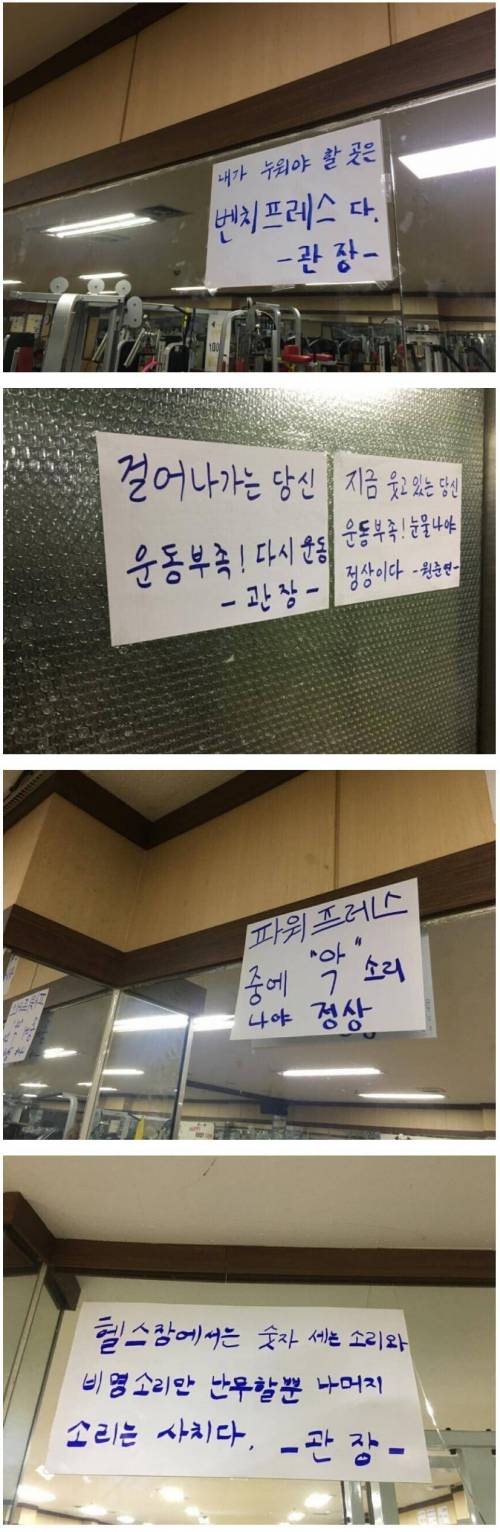 내가 누워야 할 곳은
벤치프레스 다.
-관장-
100
걸어나가는 당신
운동부족! 다시 운동
- 관장 -
지금 웃고 있는 당신
운동부족! 눈물나야
정상이다 -원준연-
파워프레스
중에 "악" 소리
나야 정상
헬스장에서는 숫자 세는 소리와
비명소리만 난무할뿐 나머지
소리는 사치다. -관장-